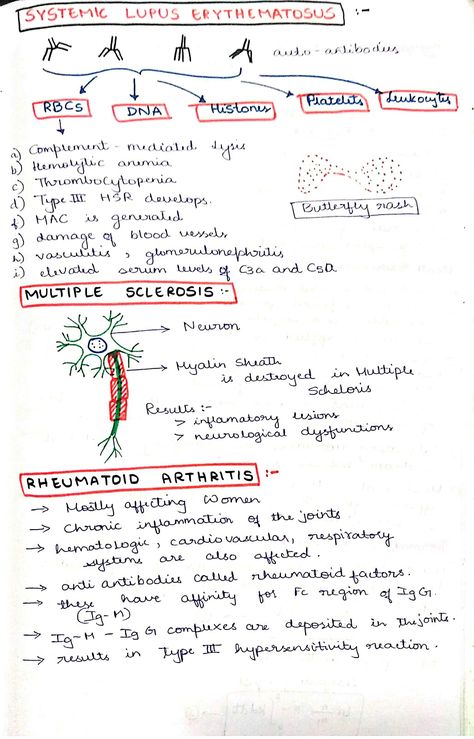 SYSTEMIC LUPUS ERYTHEMATOSUS :-
auto-antibodies
RBCs DNA Histones Platelets Leukocytes
a) Complement-mediated lysis
b) Hemolytic anemia
c) Thrombocytopenia
d) Type III HSR develops.
f) MAC is generated
g) damage of blood vessels
h) vasculitis, glomerulonephritis
i) elevated serum levels of C3a and C5a
Butterfly rash
MULTIPLE SCLEROSIS :-
Neuron
Myalin Sheath
is destroyed in Multiple
Scheloris
Results :-
> inflamatory lesions
> neurological dysfunctions
RHEUMATOID ARTHRITIS :-
→ Mostly affecting Women
→ Chronic inflammation of the joints.
→ hematologic, cardiovascular, respiratory
systems are also affected.
→ anti antibodies called rheumatoid factors.
→ these have affinity for Fc region of IgG.
(Ig-M)
→ Ig-M - IgG complexes are deposited in the joints.
→ results in Type III hypersensitivity reaction.